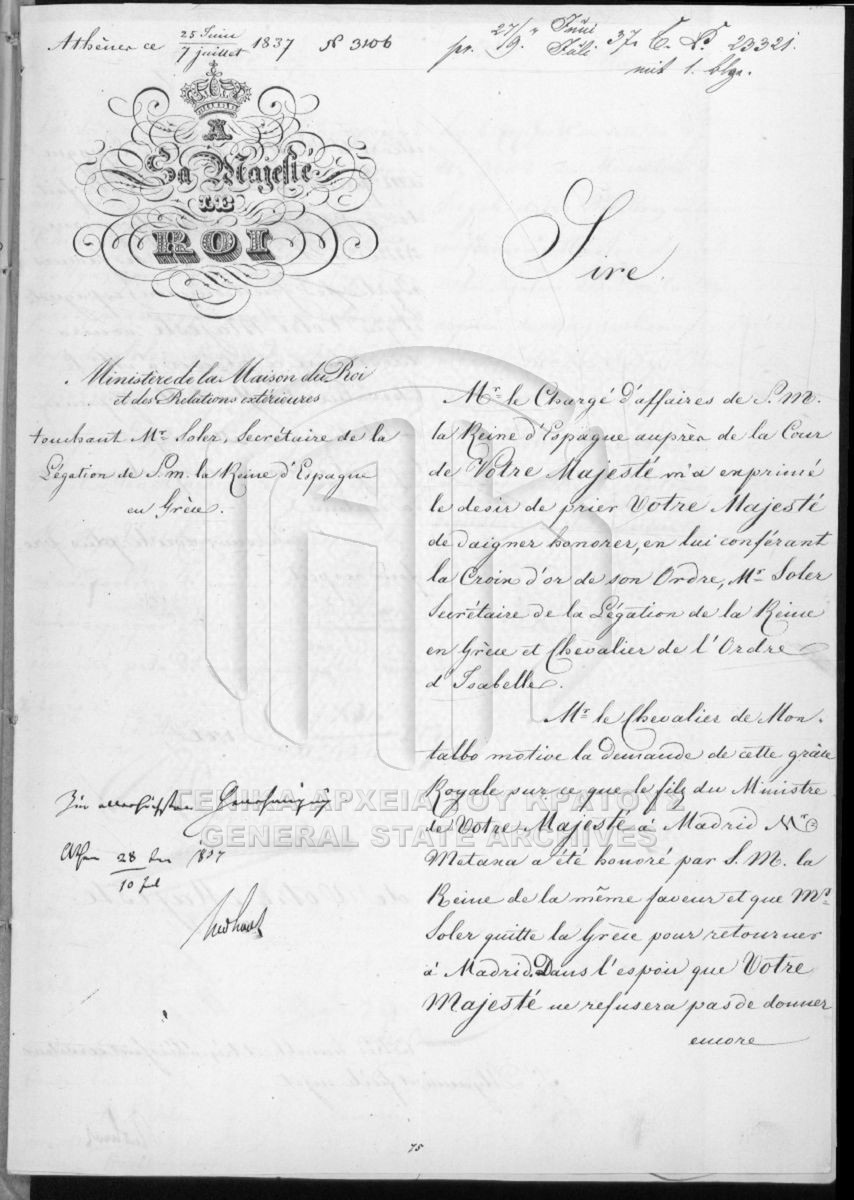 Athènes ce 25 Juin / 7 juillet 1837 N 3106
pr. 27/9. Juni/Juli 37. C. 23321.
mit 1. blge.
A
Sa Majesté
LE
ROI
Sire.
Ministère de la Maison du Roi
et des Relations extérieures
touchant Mr. Soler, Secrétaire de la
Légation de S. m. la Reine d'Espagne
en Grèce.
Mr. le Chargé d'affaires de S. M.
la Reine d'Espagne auprès de la Cour
de Votre Majesté m'a exprimé
le desir de prier Votre Majesté
de daigner honorer, en lui conférant
la Croix d'or de son Ordre, Mr. Soler
Secrétaire de la Légation de la Reine
en Grèce et Chevalier de l'Ordre
d'Isabelle.
Mr. le Chevalier de Mon-
talbo motive la demande de cette grâce
Royale sur ce que le filz du Ministre
de Votre Majesté à Madrid Mr.
Metaxa a été honoré par S. M. la
Reine de la même faveur et que Mr.
Soler quitte la Grèce pour retourner
à Madrid. Dans l'espoir que Votre
Majesté ne refusera pas de donner
encore
Zur allerhöchsten Genehmigung
Athen 28 Jun / 10 Jul 1837
ΓΕΝΙΚΑ ΑΡΧΕΙΑ ΤΟΥ ΚΡΑΤΟΥΣ
GENERAL STATE ARCHIVES
75